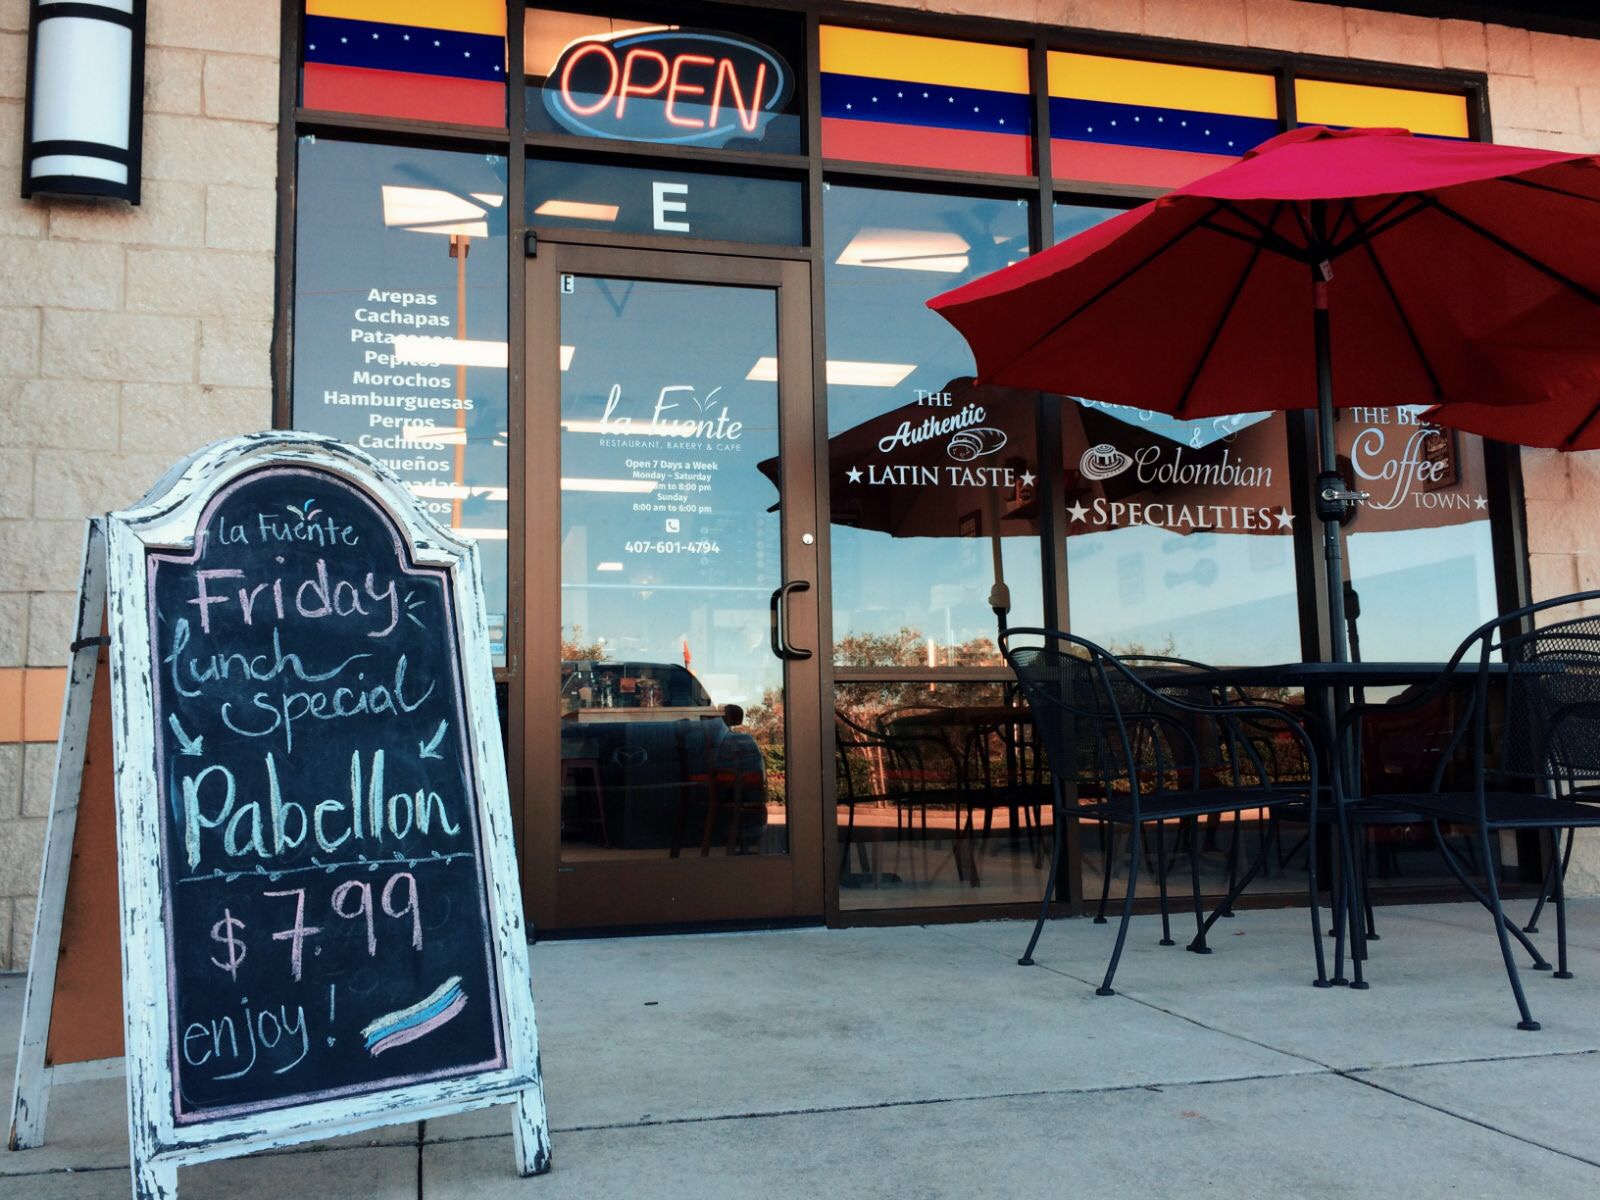 OPEN
E
E
Arepas
Cachapas
Patacones
Pepitos
Morochos
Hamburguesas
Perros
Cachitos
la Fuente
RESTAURANT, BAKERY & CAFE
Open 7 Days a Week
Monday – Saturday
to 8:00 pm
Sunday
8:00 am to 6:00 pm
407-601-4794
THE
Authentic
LATIN TASTE
&
Colombian
SPECIALTIES
THE BEST
Coffee
IN TOWN
la Fuente
Friday
lunch
special
Pabellon
$7.99
enjoy!
VISA